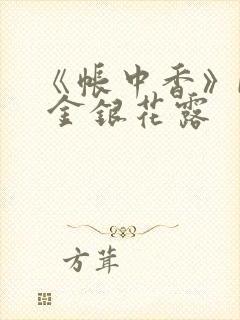 《帐中香》
金银花露
方茸